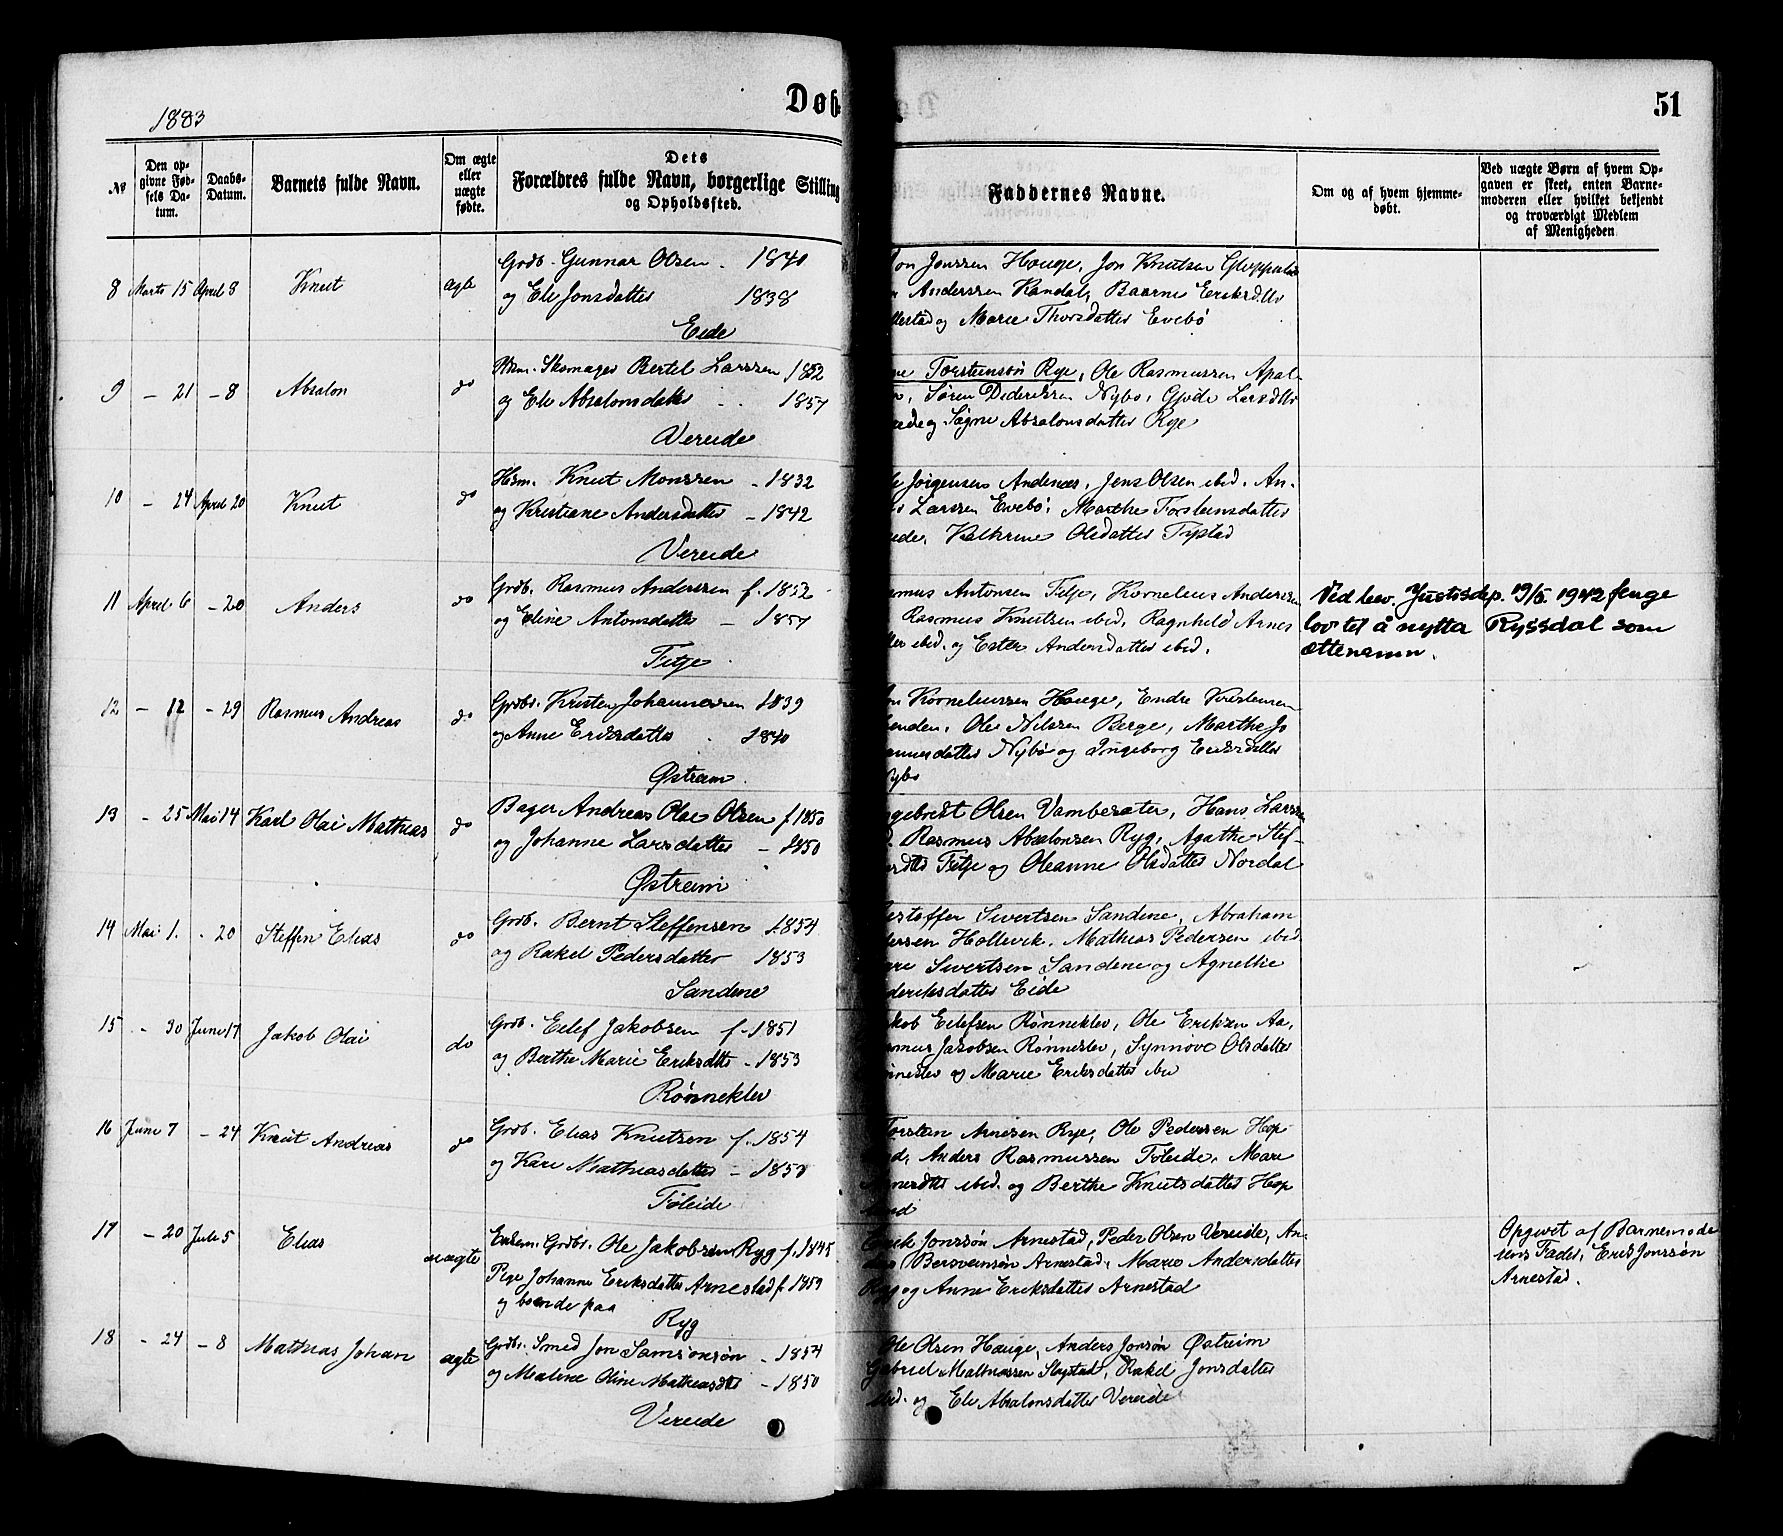 1883
Døb-
51
№
Den op-
givne Fød-
sels Da-
tum.
Daabs-
Datum.
Barnets fulde Navn.
Om ægte
eller
uægte
fødte.
Dets
Forældres fulde Navn, borgerlige Stilling
og Opholdssted.
Faddernes Navne.
Om og af hvem hjemme-
døbt.
Ved uægte Børn af hvem Op-
gaven er skeet, enten Barne-
moderen eller hvilket bekjendt
og troværdigt Medlem
af Menigheden
8 Marts 15 April 8 Knut ægte
Grdb. Gunnar Olsen. 1840
og Eli Jonsdatter 1838
Eide
Jon Jonssen Hauge, Jon Knutsen
Anderssen Kandal, Baarne Eriksdtter
og Marie Thorsdatter Evebø
9 – 21 – 8 Absalon do
Skomager Bertel Larssen 1852
og Eli Absalonsdatter 1857
Vereide
Torsteinsön Rye, Ole Rasmussen Apal-
Søren Dideriksen Nybø, Gjøde Larsdtter
og Signe Absalonsdatter Rye
10 – 24 April 20 Knut do
Hsm. Knut Monssen – 1832
og Kristiane Andersdatter – 1842
Vereide
Jørgensen Andenæs, Jens Olsen ibid. An-
Larssen Evebø, Marthe Torsteinsdatter
Kathrine Olsdatter Tystad
11 April 6 – 20 Anders do
Grdb. Rasmus Anderssen f. 1852
og Eline Antonsdatter – 1857
Fitje
Antonsen Fitje, Kornelius Anderssen
Rasmus Knutsen ibid, Ragnhild Arnes
ibid. og Ester Andersdatter ibid.
Ved brev. Justisdep. 19/5. 1942 fenge
lov til å nytta Ryssdal som
ættenamn.
12 – 12 – 29 Rasmus Andreas do
Grdbr. Kristen Johannessen 1839
og Anne Eriksdatter 1840
Østreim.
Korneliussen Hauge, Endre Kristensen
Ole Nilssen Berge, Marthe Jo
Nybø og Ingeborg Eriksdatter
13 – 25 Mai 14 Karl Olai Mathias do
Bager Andreas Olai Olsen f. 1850
og Johanne Larsdatter – 1850
Østreim
Olsen Vambesæter, Hans Larssen
Rasmus Absalonsen Ryg, Agathe Stef-
Fitje og Oleanne Olsdatter Nordal
14 Mai 1. – 20 Steffen Elias do
Grdb. Bernt Steffensen f. 1854
og Rakel Pedersdatter 1853
Sandene
Sivertsen Sandene, Abraham
Hollevik. Mathias Pedersen ibid
Sivertsen Sandene og Agnethe
Eide
15 – 30 Juni 17 Jakob Olai do
Grdb. Eilef Jakobsen f. 1851
og Berthe Marie Eriksdtt – 1853
Rønneklev
Eilefsen Rønneklev, Ole Eriksen Aa,
Jakobsen Rønneklev, Synnøve Olsdatter
og Marie Eriksdatter ibid
16 Juni 7 – 24 Knut Andreas do
Grdb. Elias Knutsen f. 1854
og Kari Mathiasdatter – 1850
Føleide
Torstein Arnesen Rye, Ole Pedersen Hop
Anders Rasmussen Føleide, Mari
ibid. og Berthe Knutsdatter Hop
17 – 20 Juli 5 Elias uægte
Enkem. Grdbr. Ole Jakobsen Ryg f. 1845
Pige Johanne Eriksdatter Arnestad f. 1859
og boende paa
Ryg
Erik Jonssøn Arnestad, Peder Olsen Vereide, An-
Bersveinsøn Arnestad, Marie Andersdatter
Ryg og Anne Eriksdatter Arnestad
Opgivet af Barnemode
rens Fader, Erik Jonssøn
Arnestad.
18 – 24 – 8 Mathias Johan ægte
Grdbr. Smed Jon Samsonsøn – 1854
og Maline Oline Mathiasdtt – 1850
Vereide
Ole Olsen Hauge, Anders Jonsøn Østreim
Gabriel Mathiassen Slagstad, Rakel Jonsdatter
ibid. og Eli Absalonsdatter Vereide